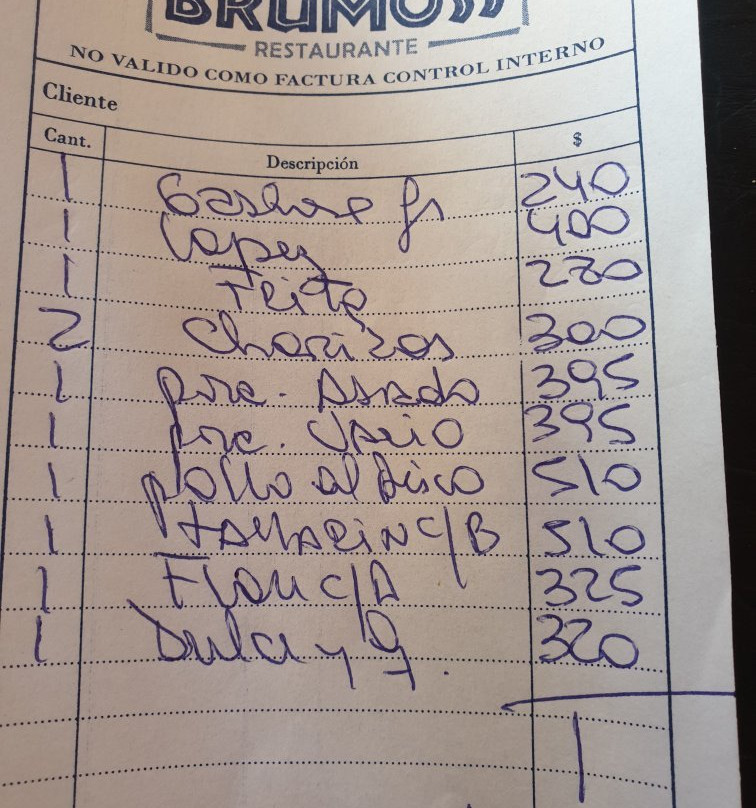 BRUMOSS
RESTAURANTE
NO VALIDO COMO FACTURA CONTROL INTERNO
Cliente
Cant. Descripción $
1 240
1 400
1
2 Chorizos 300
1 porc. Asado 395
1 porc. Vacio 395
1 pollo al disco 510
1 C/B 510
1 Flan C/D 325
1 y 320